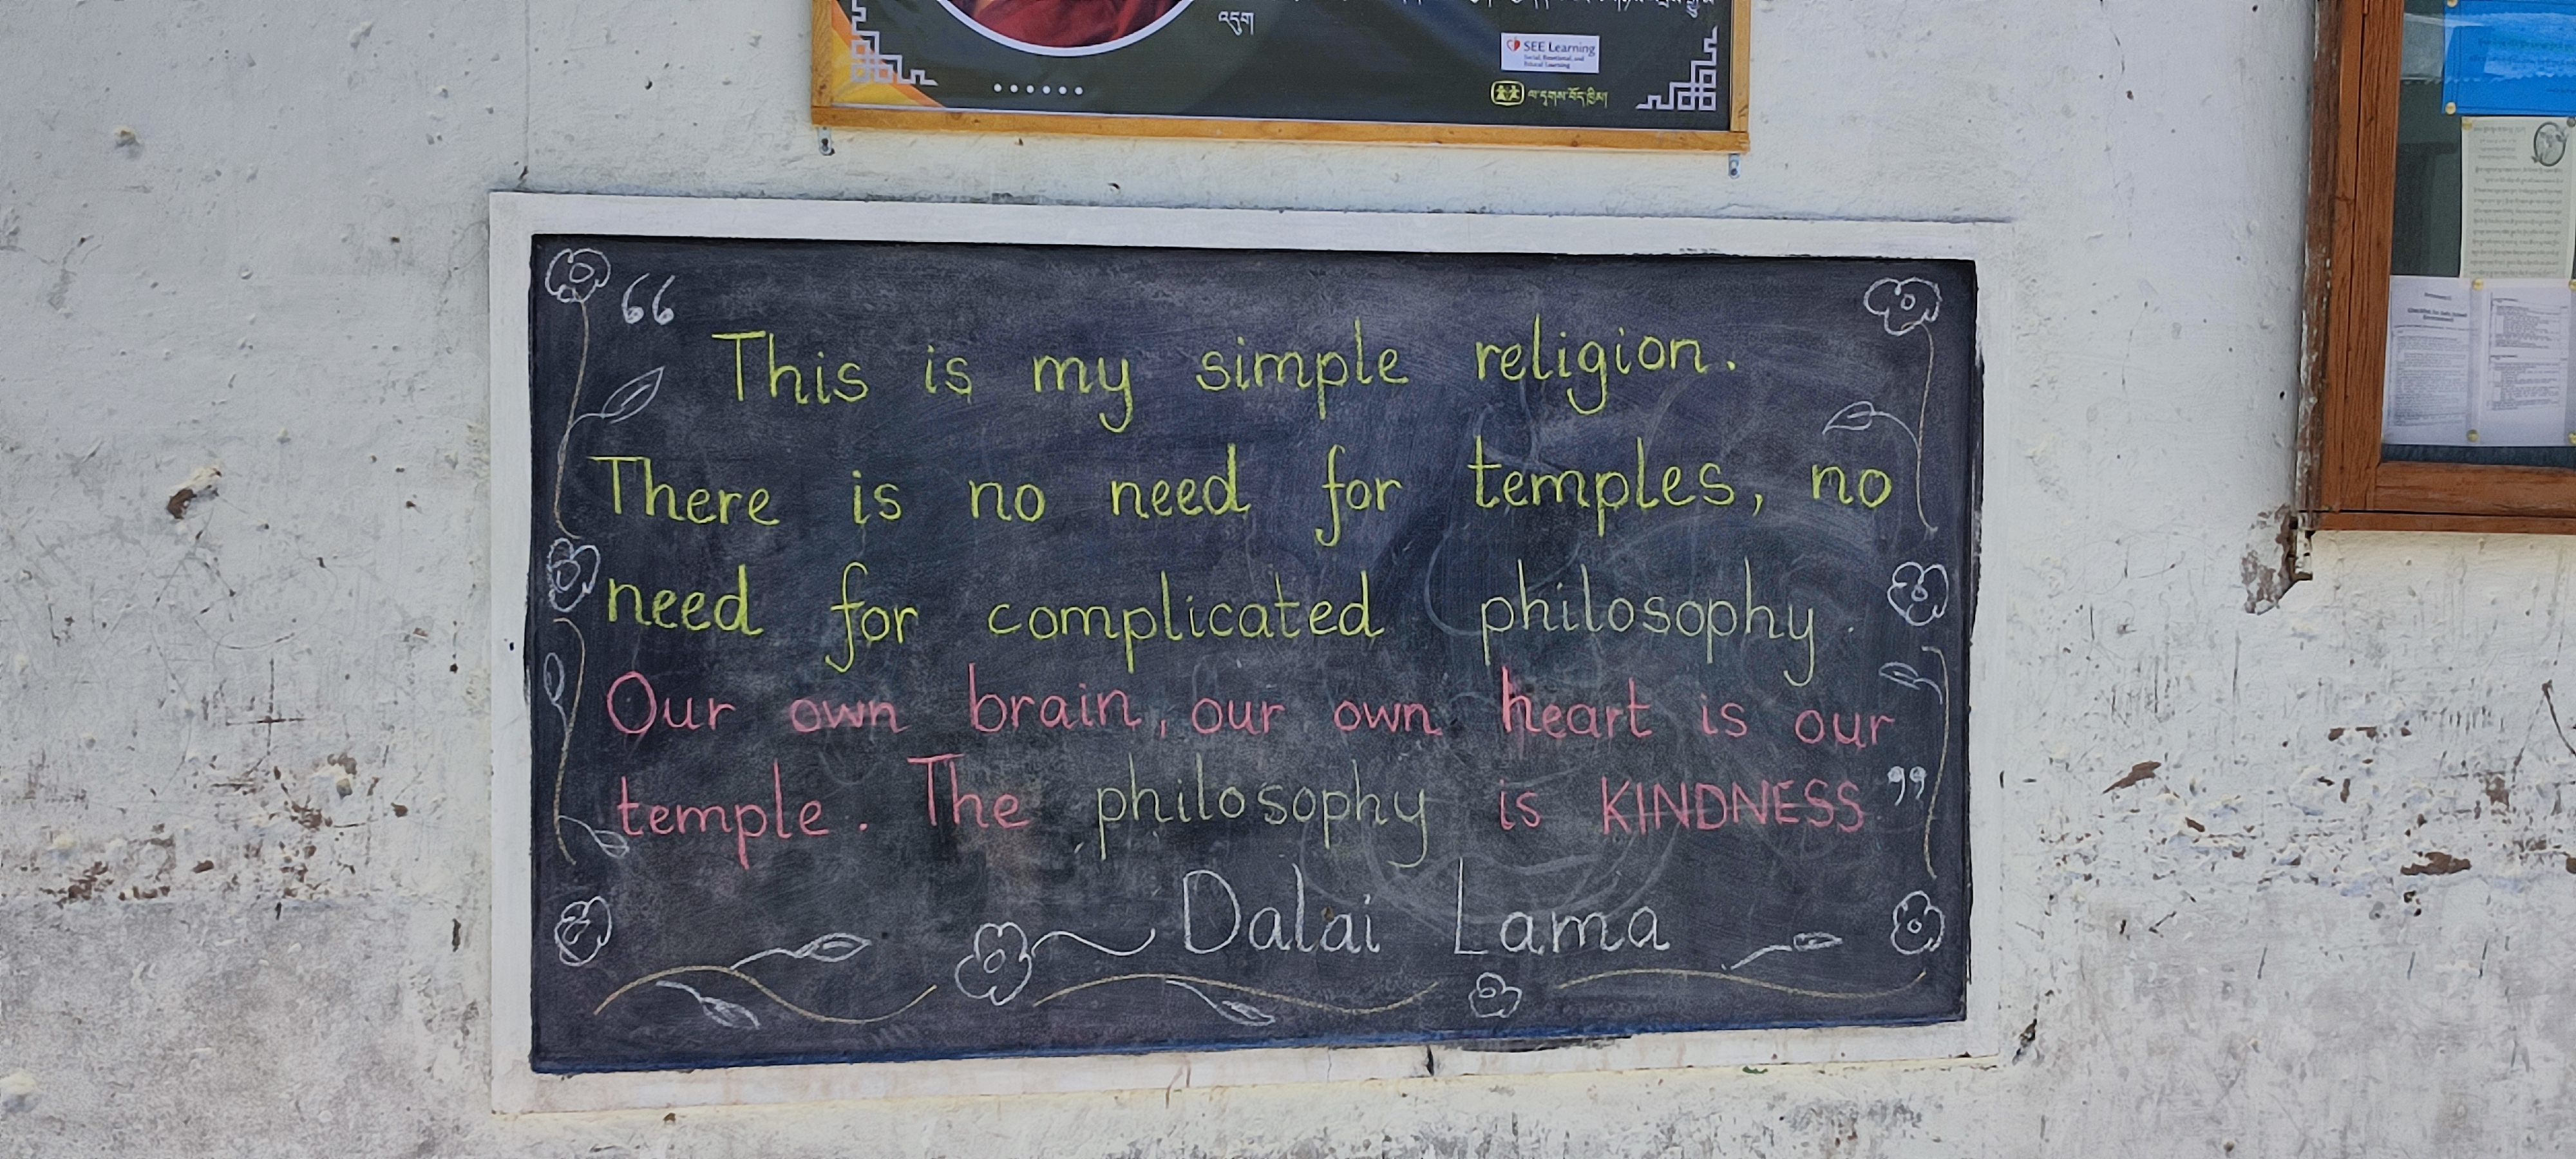 འདུག
SEE Learning
Social, Emotional, and
Ethical Learning
ལ་དྭགས་བོད་ཁྱིམ།
“ This is my simple religion.
There is no need for temples, no
need for complicated philosophy.
Our own brain, our own heart is our
temple. The philosophy is KINDNESS ”
~ Dalai Lama